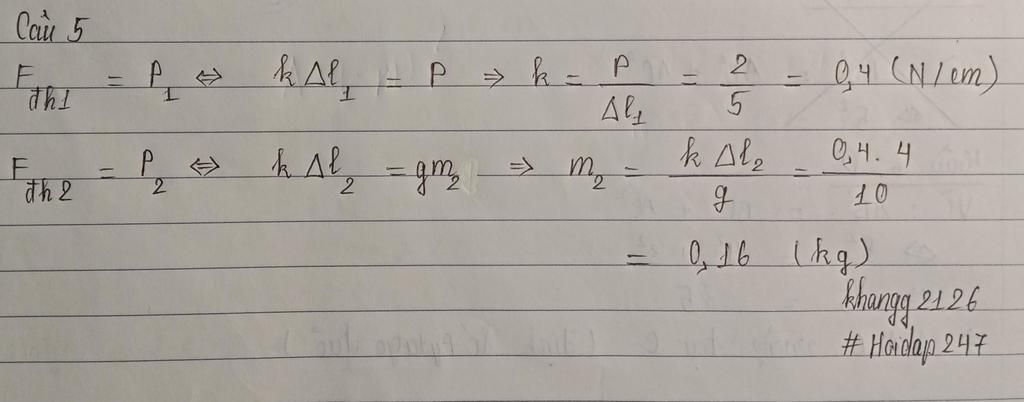 Câu 5
F đh1 = P1 ⇔ k Δl1 = P ⇒ k = P / Δl1 = 2 / 5 = 0,4 (N/cm)
F đh2 = P2 ⇔ k Δl2 = gm2 ⇒ m2 = k Δl2 / g = 0,4. 4 / 10
= 0,16 (kg)
khangg2126
# Hoidap247